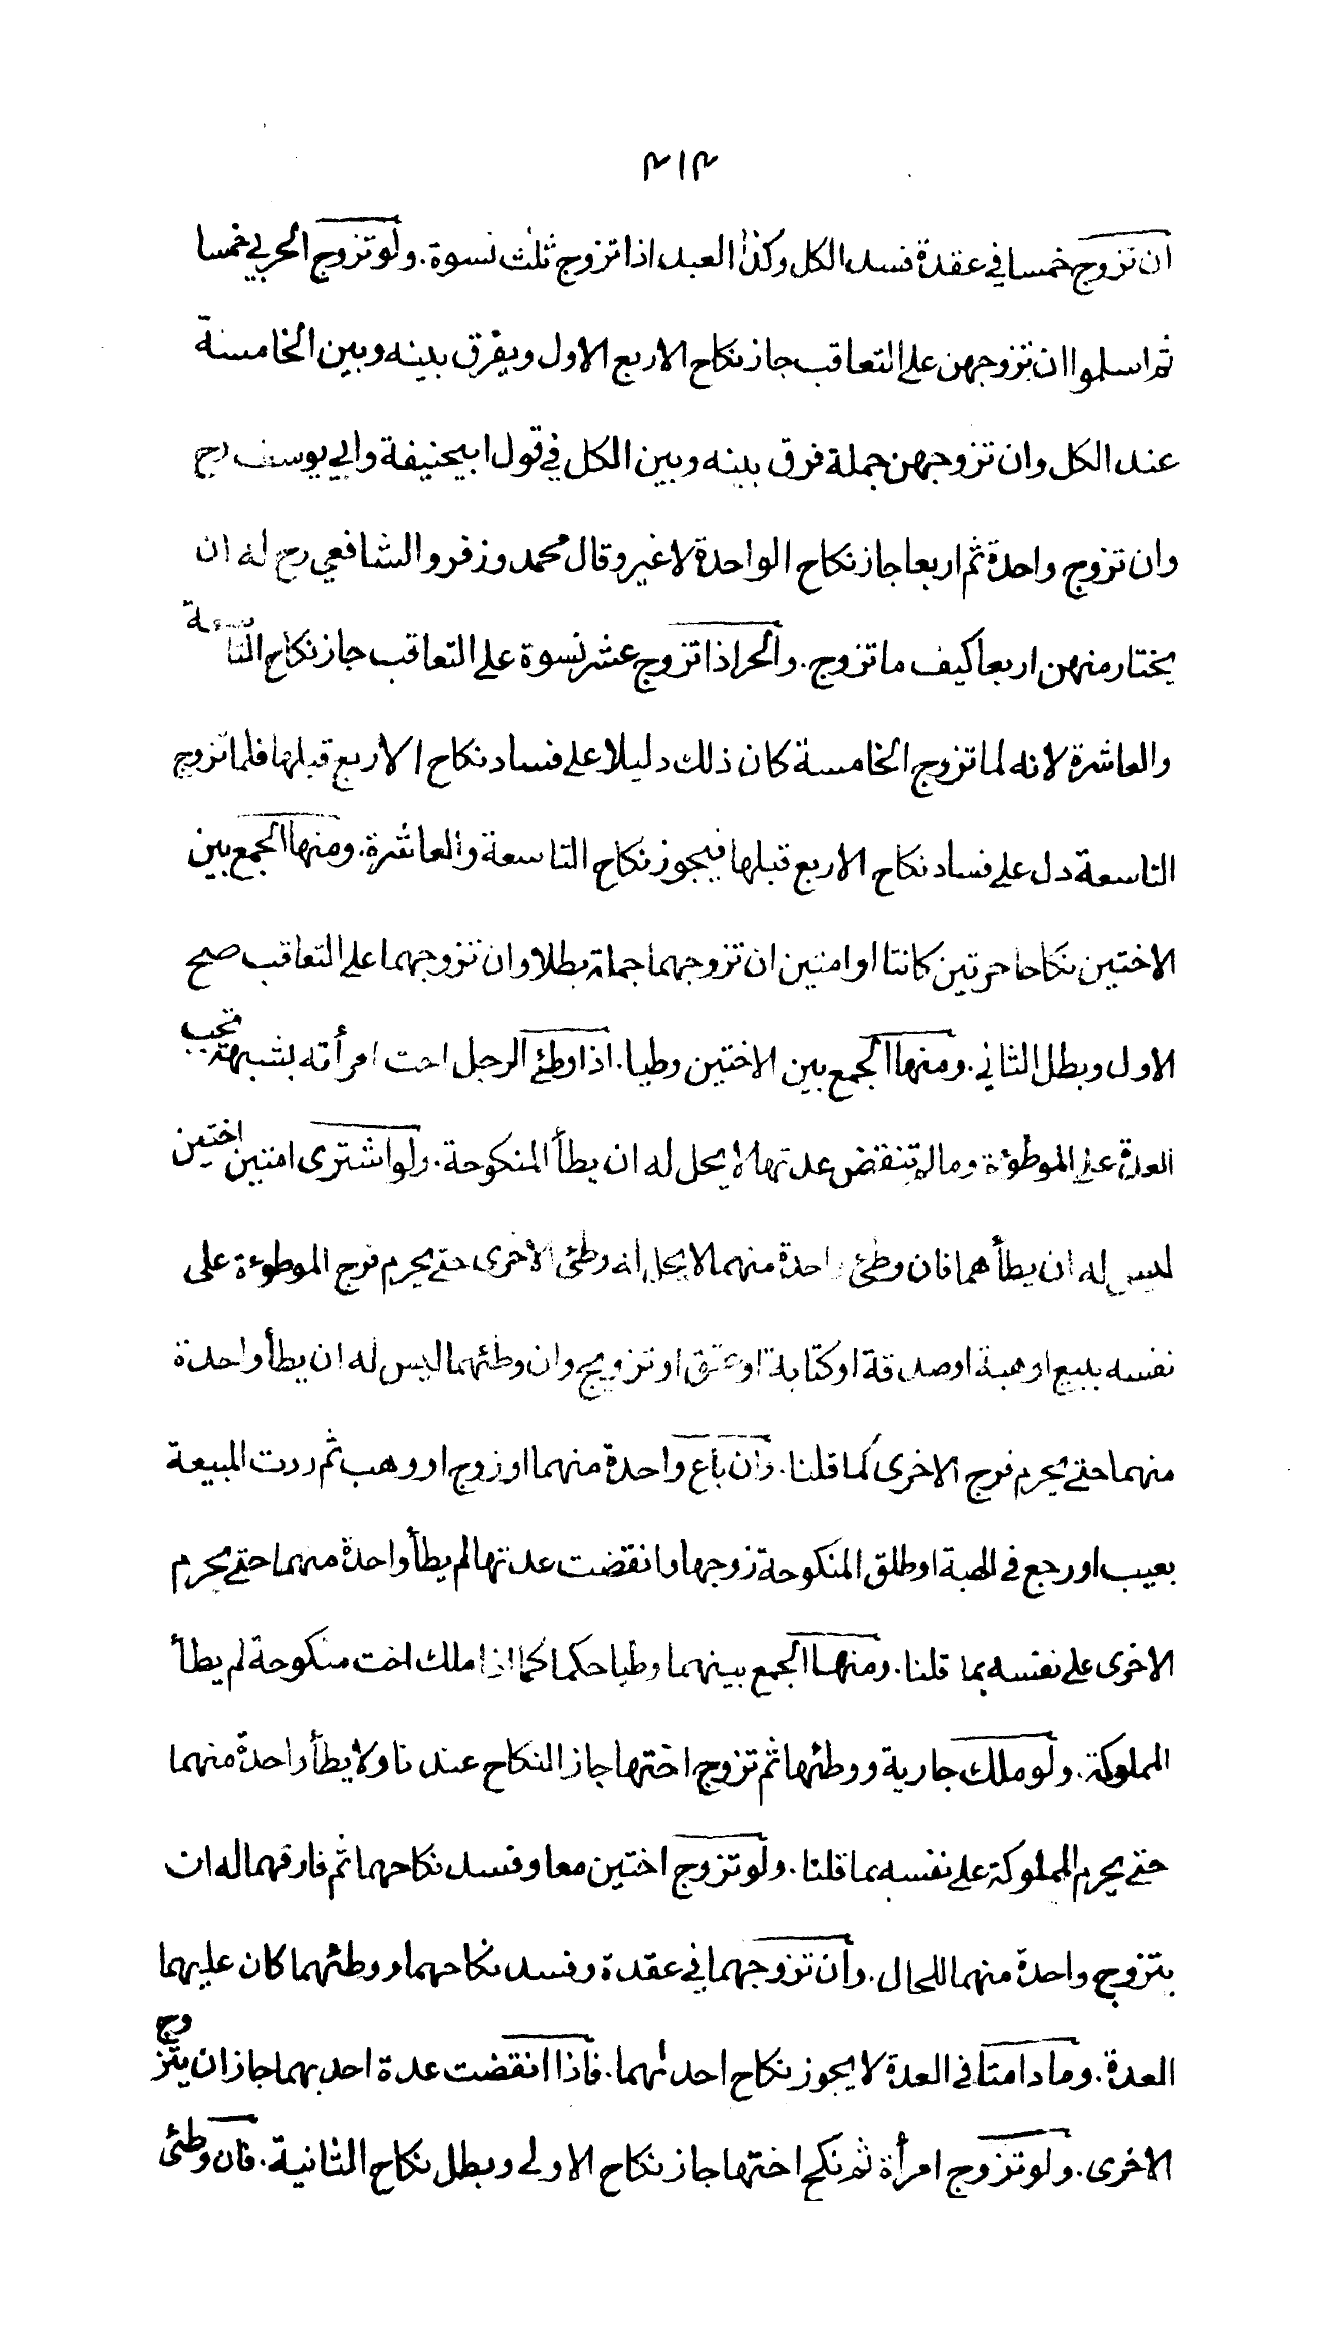 ٣١٣
ان تزوج خمسا في عقدة فسد الكل وكذا العبد اذا تزوج ثلث نسوة. ولو تزوج الحربي خمسا
ثم اسلموا ان تزوجهن على التعاقب جاز نكاح الاربع الاول ويفرق بينه وبين الخامسة
عند الكل وان تزوجهن جملة فرق بينه وبين الكل في قول ابيحنيفة وابي يوسف رح
وان تزوج واحدة ثم اربعا جاز نكاح الواحدة لا غير وقال محمد وزفر والشافعي رح له ان
يختار منهن اربعا كيف ما تزوج. والحر اذا تزوج عشر نسوة على التعاقب جاز نكاح التاسعة
والعاشرة لانه لما تزوج الخامسة كان ذلك دليلا على فساد نكاح الاربع قبلها فلما تزوج
التاسعة دل على فساد نكاح الاربع قبلها فيجوز نكاح التاسعة والعاشرة. ومنها الجمع بين
الاختين نكاحا حرتين كانتا او امتين ان تزوجهما جملة بطلا وان تزوجهما على التعاقب صح
الاول وبطل الثاني. ومنها الجمع بين الاختين وطيا. اذا وطئ الرجل اخت امرأته بشبهة تجب
العدة على الموطؤة وما لم تنقض عدتها لا يحل له ان يطأ المنكوحة. ولو اشترى امتين اختين
ليس له ان يطأهما فان وطئ واحدة منهما لا يحل له وطئ الاخرى حتى يحرم فرج الموطوءة على
نفسه ببيع او هبة او صدقة او كتابة او عتق او تزويج وان وطئهما ليس له ان يطأ واحدة
منهما حتى يحرم فرج الاخرى كما قلنا. وان باع واحدة منهما او زوج او وهب ثم ردت المبيعة
بعيب او رجع في الهبة او طلق المنكوحة زوجها وانقضت عدتها لم يطأ واحدة منهما حتى يحرم
الاخرى على نفسه بما قلنا. ومنها الجمع بينهما وطيا حكما كما اذا ملك اخت منكوحة لم يطأ
المملوكة. ولو ملك جارية ووطئها ثم تزوج اختها جاز النكاح عندنا ولا يطأ واحدة منهما
حتى يحرم المملوكة على نفسه بما قلنا. ولو تزوج اختين معا وفسد نكاحهما ثم فارقهما له ان
يتزوج واحدة منهما للحال. وان تزوجهما في عقدة وفسد نكاحهما ووطئهما كان عليهما
العدة. وما دامتا في العدة لا يجوز نكاح احدٰهما. فاذا انقضت عدة احديهما جاز ان يتزوج
الاخرى. ولو تزوج امرأة ثم نكح اختها جاز نكاح الاولى وبطل نكاح الثانية. فان وطئ